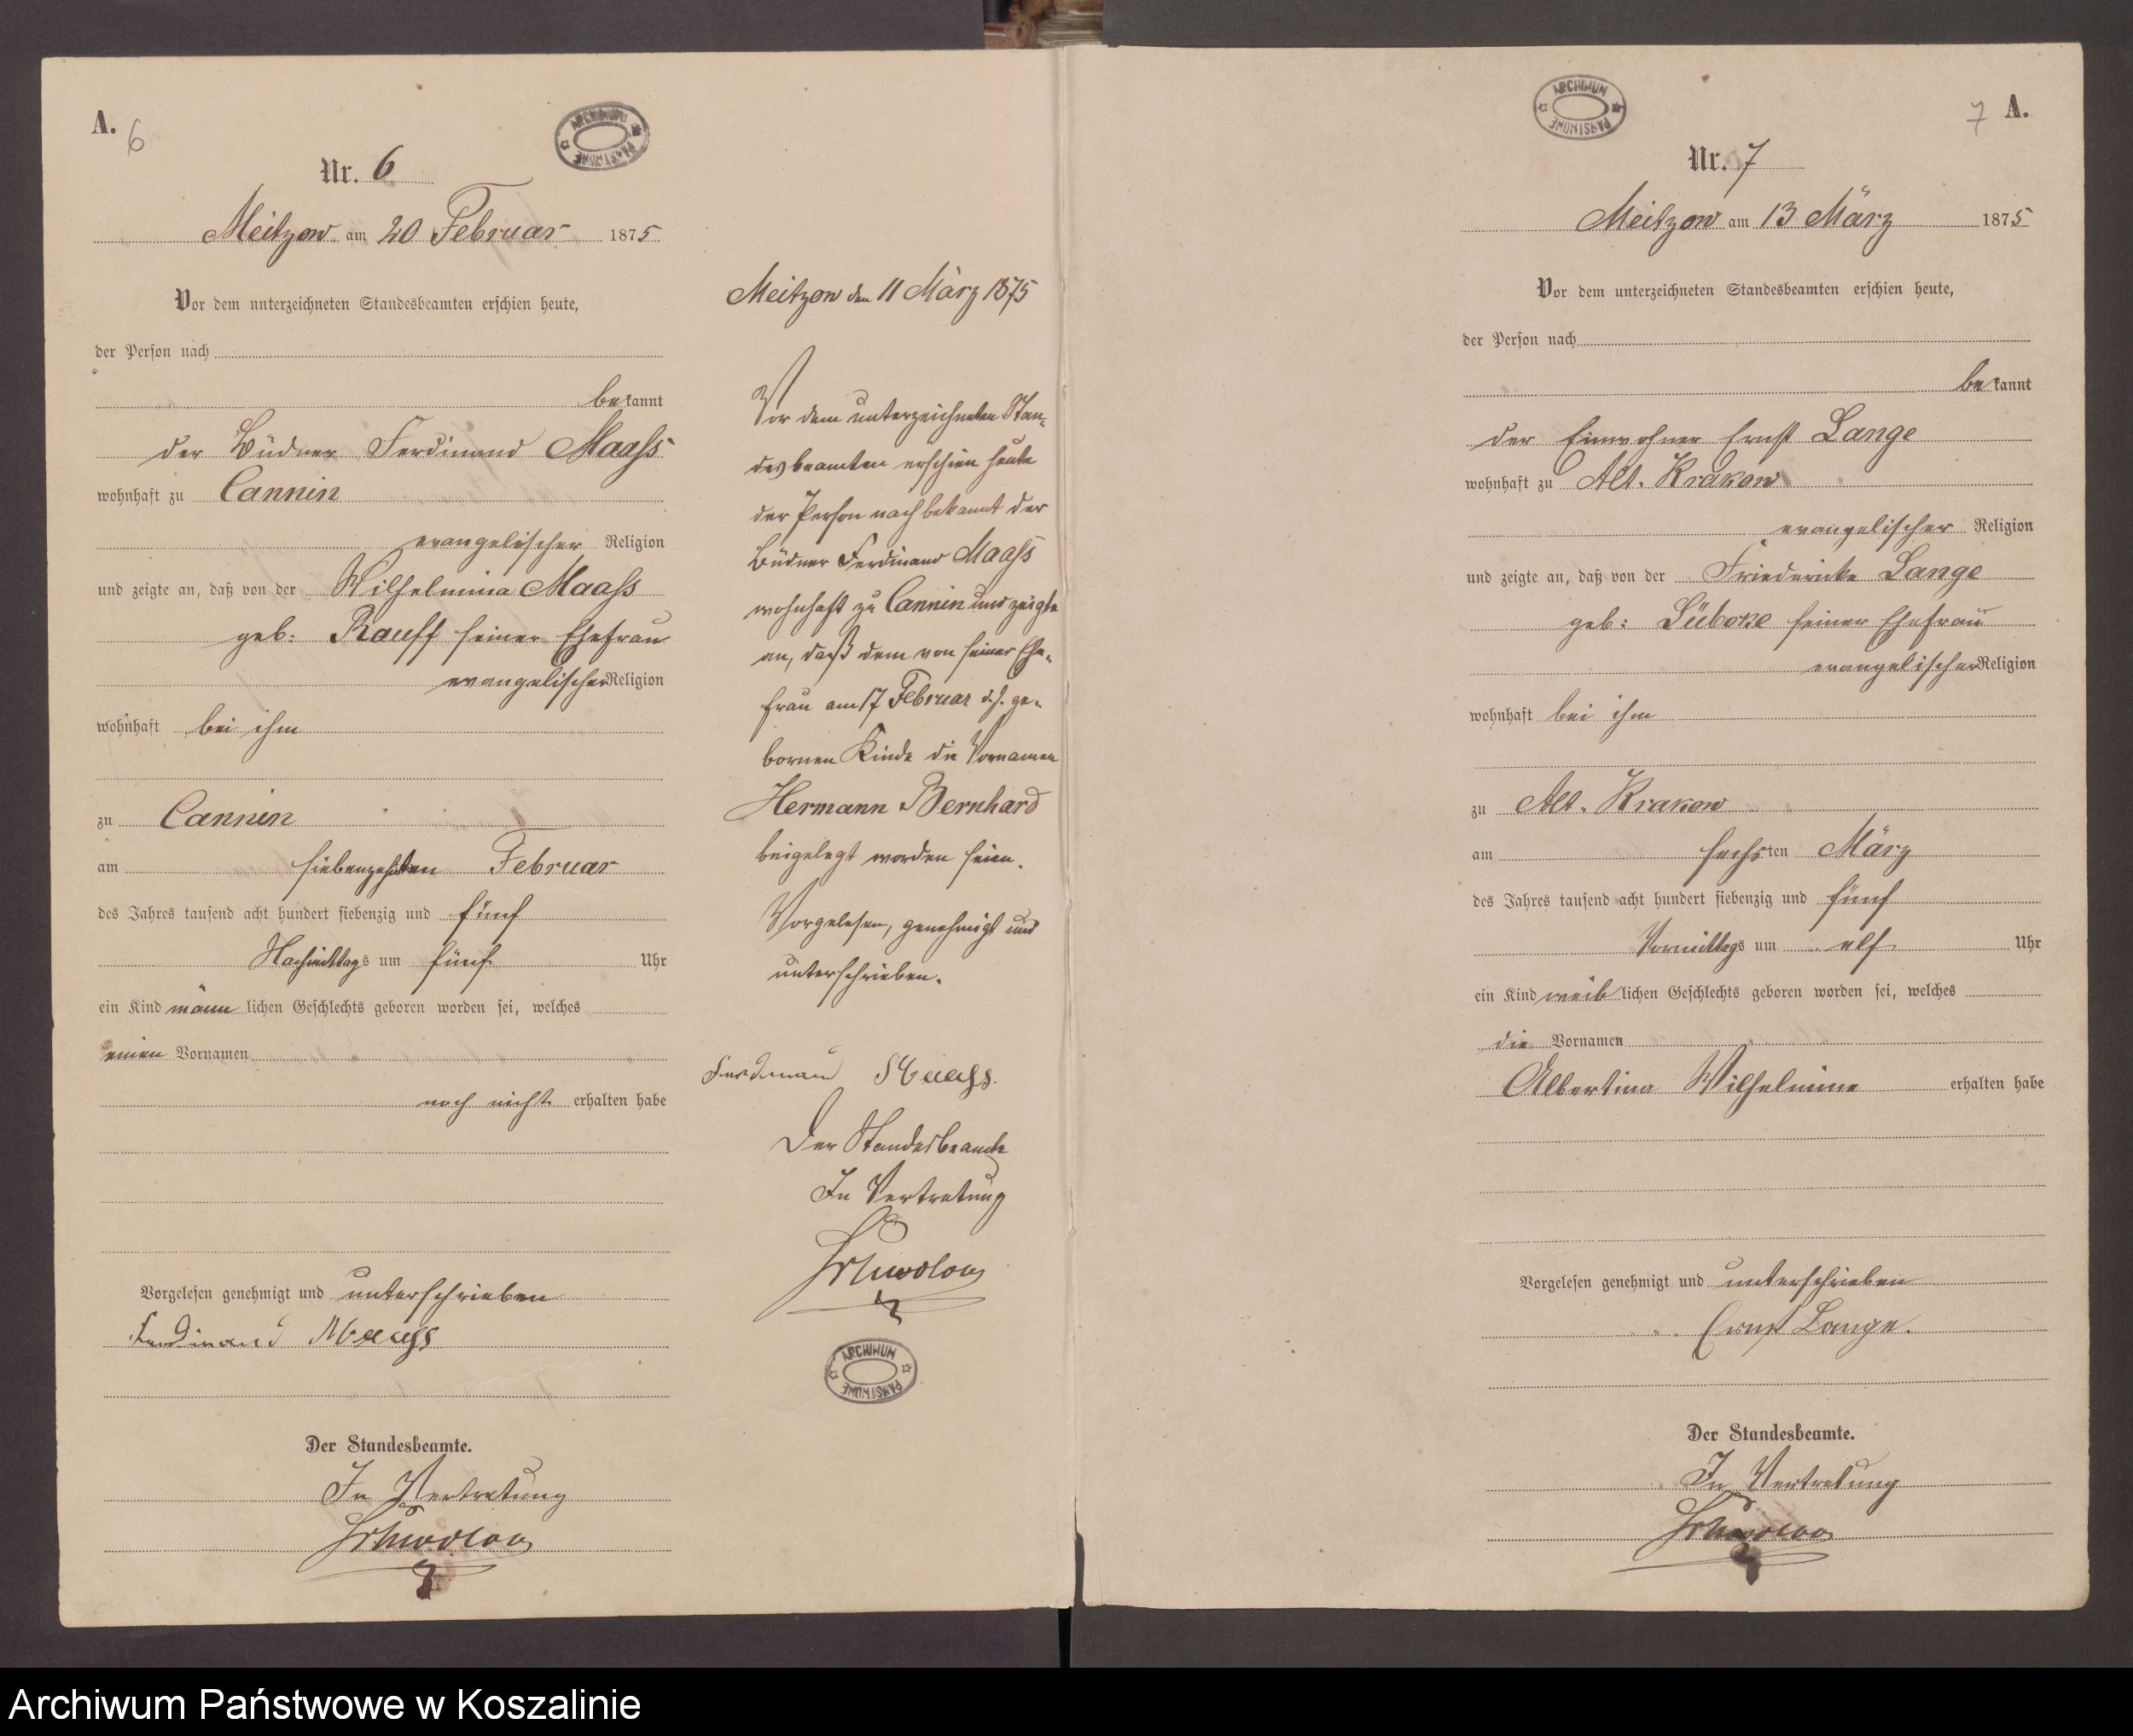 A.
6
ARCHIWUM PAŃSTWOWE
Nr. 6
Meitzow am 20 Februar 1875
Vor dem unterzeichneten Standesbeamten erschien heute,
der Person nach
bekannt
der Büdner Ferdinand Maaß
wohnhaft zu Cannin
evangelischer Religion
und zeigte an, daß von der Wilhelmina Maaß
geb: Rauff seiner Ehefrau
evangelischer Religion
wohnhaft bei ihm
zu Cannin
am siebenzehnten Februar
des Jahres tausend acht hundert siebenzig und fünf
Nachmittags um fünf Uhr
ein Kind männlichen Geschlechts geboren worden sei, welches
einen Vornamen
noch nicht erhalten habe
Vorgelesen genehmigt und unterschrieben
Ferdinand Maaß
Der Standesbeamte.
In Vertretung
Meitzow den 11 März 1875
Vor dem unterzeichneten Stan-
desbeamten erschien heute
der Person nach bekannt der
Büdner Ferdinand Maaß
wohnhaft zu Cannin und zeigte
an, daß dem von seiner Ehe-
frau am 17 Februar d. J. ge-
bornen Kinde die Vornamen
Hermann Bernhard
beigelegt worden seien.
Vorgelesen, genehmigt und
unterschrieben.
Ferdinand Maaß.
Der Standesbeamte
In Vertretung
ARCHIWUM PAŃSTWOWE
ARCHIWUM PAŃSTWOWE
7 A.
Nr. 7
Meitzow am 13 März 1875
Vor dem unterzeichneten Standesbeamten erschien heute,
der Person nach
bekannt
der Einwohner Ernst Lange
wohnhaft zu Alt. Krakow
evangelischer Religion
und zeigte an, daß von der Friedericke Lange
geb: Lübcke seiner Ehefrau
evangelischer Religion
wohnhaft bei ihm
zu Alt. Krakow
am sechsten März
des Jahres tausend acht hundert siebenzig und fünf
Vormittags um elf Uhr
ein Kind weiblichen Geschlechts geboren worden sei, welches
die Vornamen
Albertina Wilhelmine erhalten habe
Vorgelesen genehmigt und unterschrieben
Ernst Lange.
Der Standesbeamte.
In Vertretung
Archiwum Państwowe w Koszalinie